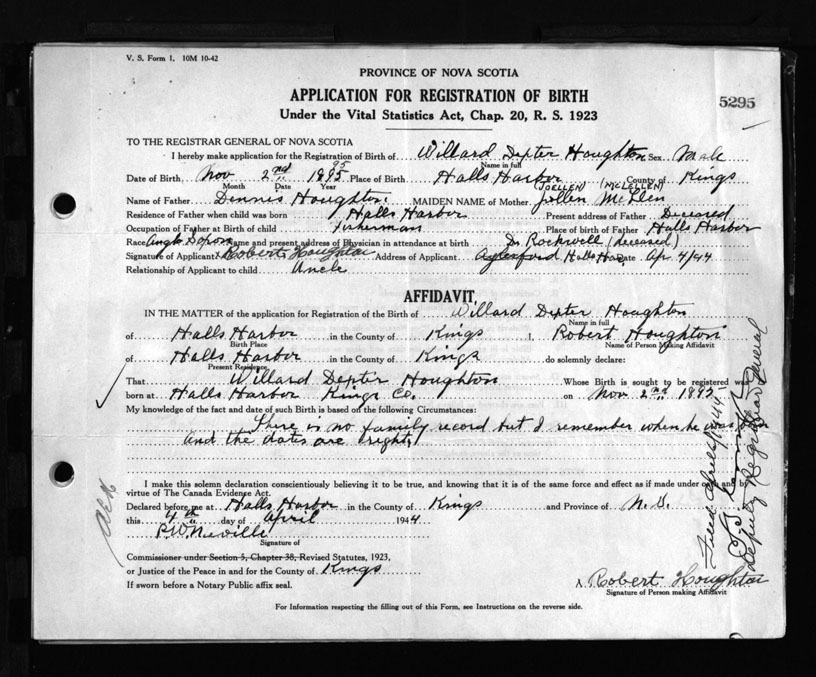 V. S. Form 1. 10M 10-42
PROVINCE OF NOVA SCOTIA
APPLICATION FOR REGISTRATION OF BIRTH
5295
Under the Vital Statistics Act, Chap. 20, R. S. 1923
TO THE REGISTRAR GENERAL OF NOVA SCOTIA
I hereby make application for the Registration of Birth of Willard Dexter Houghton Sex Male
Name in full
95
Date of Birth Nov 2nd 1895 Place of Birth Halls Harbor County of Kings
Month Date Year
(JOELLEN) (McLELLEN)
Name of Father Dennis Houghton MAIDEN NAME of Mother Jollen McLlen
Residence of Father when child was born Halls Harbor Present address of Father Deceased
Occupation of Father at Birth of child Fisherman Place of birth of Father Halls Harbor
Race Anglo Saxon Name and present address of Physician in attendance at birth Dr Rockwell (deceased)
Signature of Applicant x Robert Houghton Address of Applicant Aylesford Halls Har. Date Apr 4/44
Relationship of Applicant to child Uncle
AFFIDAVIT,
IN THE MATTER of the application for Registration of the Birth of Willard Dexter Houghton
Name in full
of Halls Harbor in the County of Kings I, Robert Houghton
Birth Place Name of Person Making Affidavit
of Halls Harbor in the County of Kings do solemnly declare:
Present Residence,
That Willard Dexter Houghton Whose Birth is sought to be registered was
born at Halls Harbor Kings Co. on Nov 2nd 1895
My knowledge of the fact and date of such Birth is based on the following Circumstances:
There is no family record but I remember when he was
and the dates are right.
I make this solemn declaration conscientiously believing it to be true, and knowing that it is of the same force and effect as if made under oath and by
virtue of The Canada Evidence Act.
Declared before me at Halls Harbor in the County of Kings and Province of N.S.
this 4th day of April 1944
P.W. Neville
Signature of
Commissioner under Section 5, Chapter 38, Revised Statutes, 1923,
or Justice of the Peace in and for the County of Kings
If sworn before a Notary Public affix seal.
x Robert Houghton
Signature of Person making Affidavit
For Information respecting the filling out of this Form, see Instructions on the reverse side.
Filed April
Deputy Registrar General